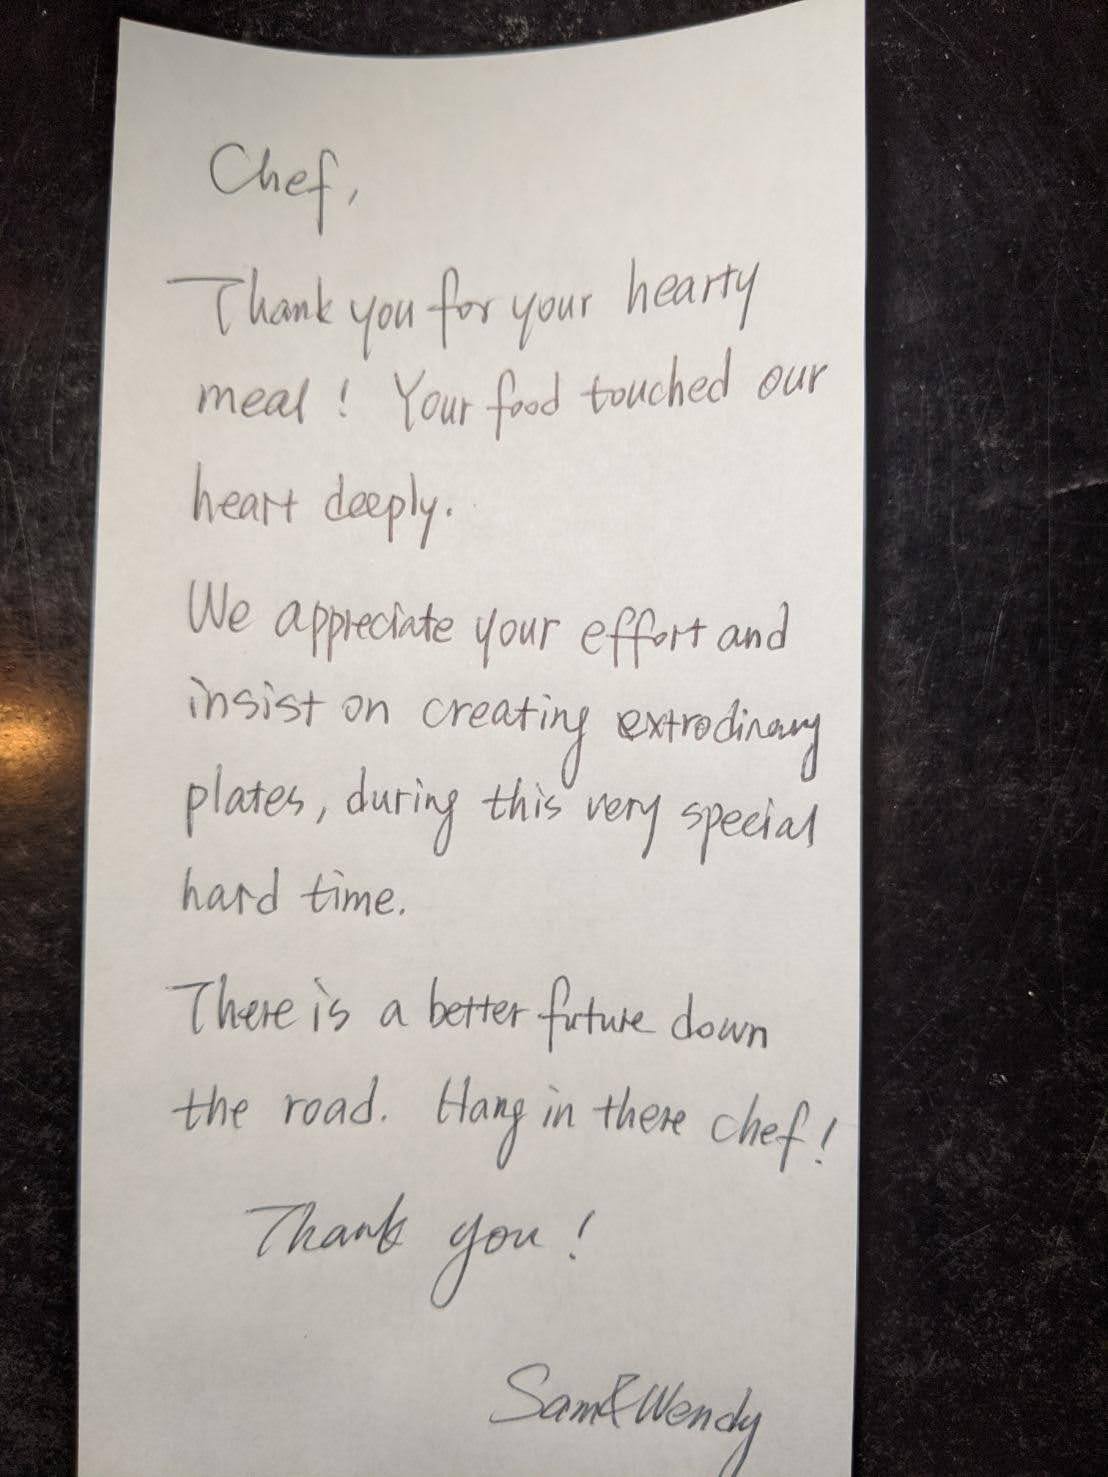 Chef,
Thank you for your hearty
meal! Your food touched our
heart deeply.
We appreciate your effort and
insist on creating extrodinary
plates, during this very special
hard time.
There is a better future down
the road. Hang in there chef!
Thank you!
Sam&Wendy